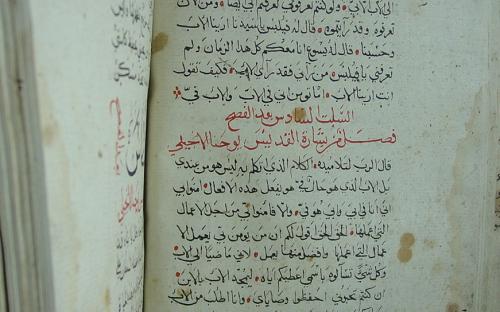 الى الاب الا بي • ولو كنتم تعرفوني لعرفتم ابي ايضا • ومن الان
تعرفوه وقد رأيتموه • قال له فيلبس يا سيدنا ارينا الاب
وحسبنا • قال له يسوع انا معكم كل هذا الزمان ولم
تعرفني يا فيلبس • من رآني فقد رآى الاب • فكيف تقول
انت ارينا الاب • اما تومن اني في الاب والاب فيّ
السبت السادس بعد الفصح
فصل من بشارة القديس يوحنا الانجيلي
قال الرب لتلاميذه • الكلام الذي اتكلم به ليس هو من عندي
بل الاب الذي هو حال فيّ هو يفعل هذه الافعال • امنوا بي
اني انا في ابي وابي هو فيّ • والا فامنوا بي من اجل الاعمال
التي اعملها • الحق الحق اقول لكم ان من يومن بي يعمل الا
عمال التي اعملها وافضل منها يعمل • لاني ماضٍ الى الاب
وكل شي تسألوه باسمي اعطيكم اياه • ليمجد الاب بالابن •
ان كنتم تحبوني احفظوا وصاياي • وانا اطلب من الاب